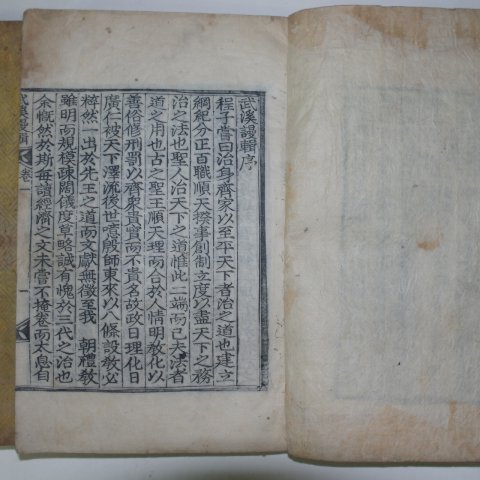 武溪謾輯序
程子嘗曰治身齊家以至平天下者治之道也建立
綱紀分正百職順天揆事創制立度以盡天下之務
治之法也聖人治天下之道惟此二端而已夫法者
道之用也古之聖王順天理而合於人情明教化以
善俗修刑罰以齊衆貴實而不貴名故政日理化日
廣仁被天下澤流後世噫殷師東來以八條設教必
粹然一出於先王之道而文獻無徵至我 朝禮教
雖明而規模疎闊儀度草略誠有愧於三代之治也
余慨然於斯每讀經濟之文未嘗不掩卷而太息自
武溪謾輯 卷一 一